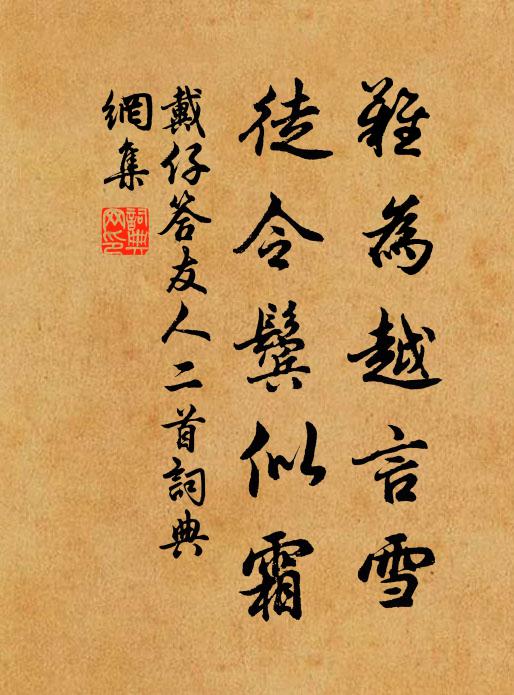 難為越言雪
徒令鬢似霜
戴仔答友人二首詞典
網集
詞典
网印